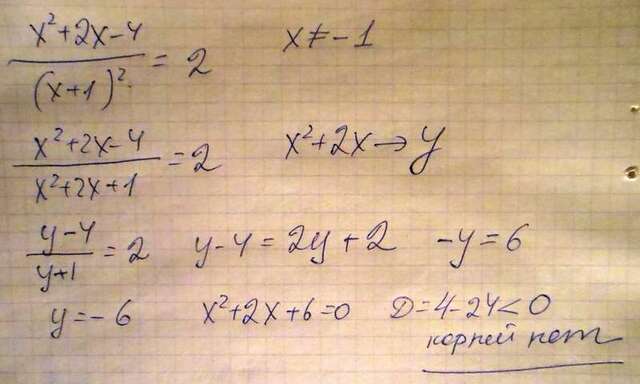 (x²+2x-4)/(x+1)² = 2 x≠-1
(x²+2x-4)/(x²+2x+1) = 2 x²+2x→y
(y-4)/(y+1) = 2 y-4=2y+2 -y=6
y=-6 x²+2x+6=0 D=4-24<0
корней нет